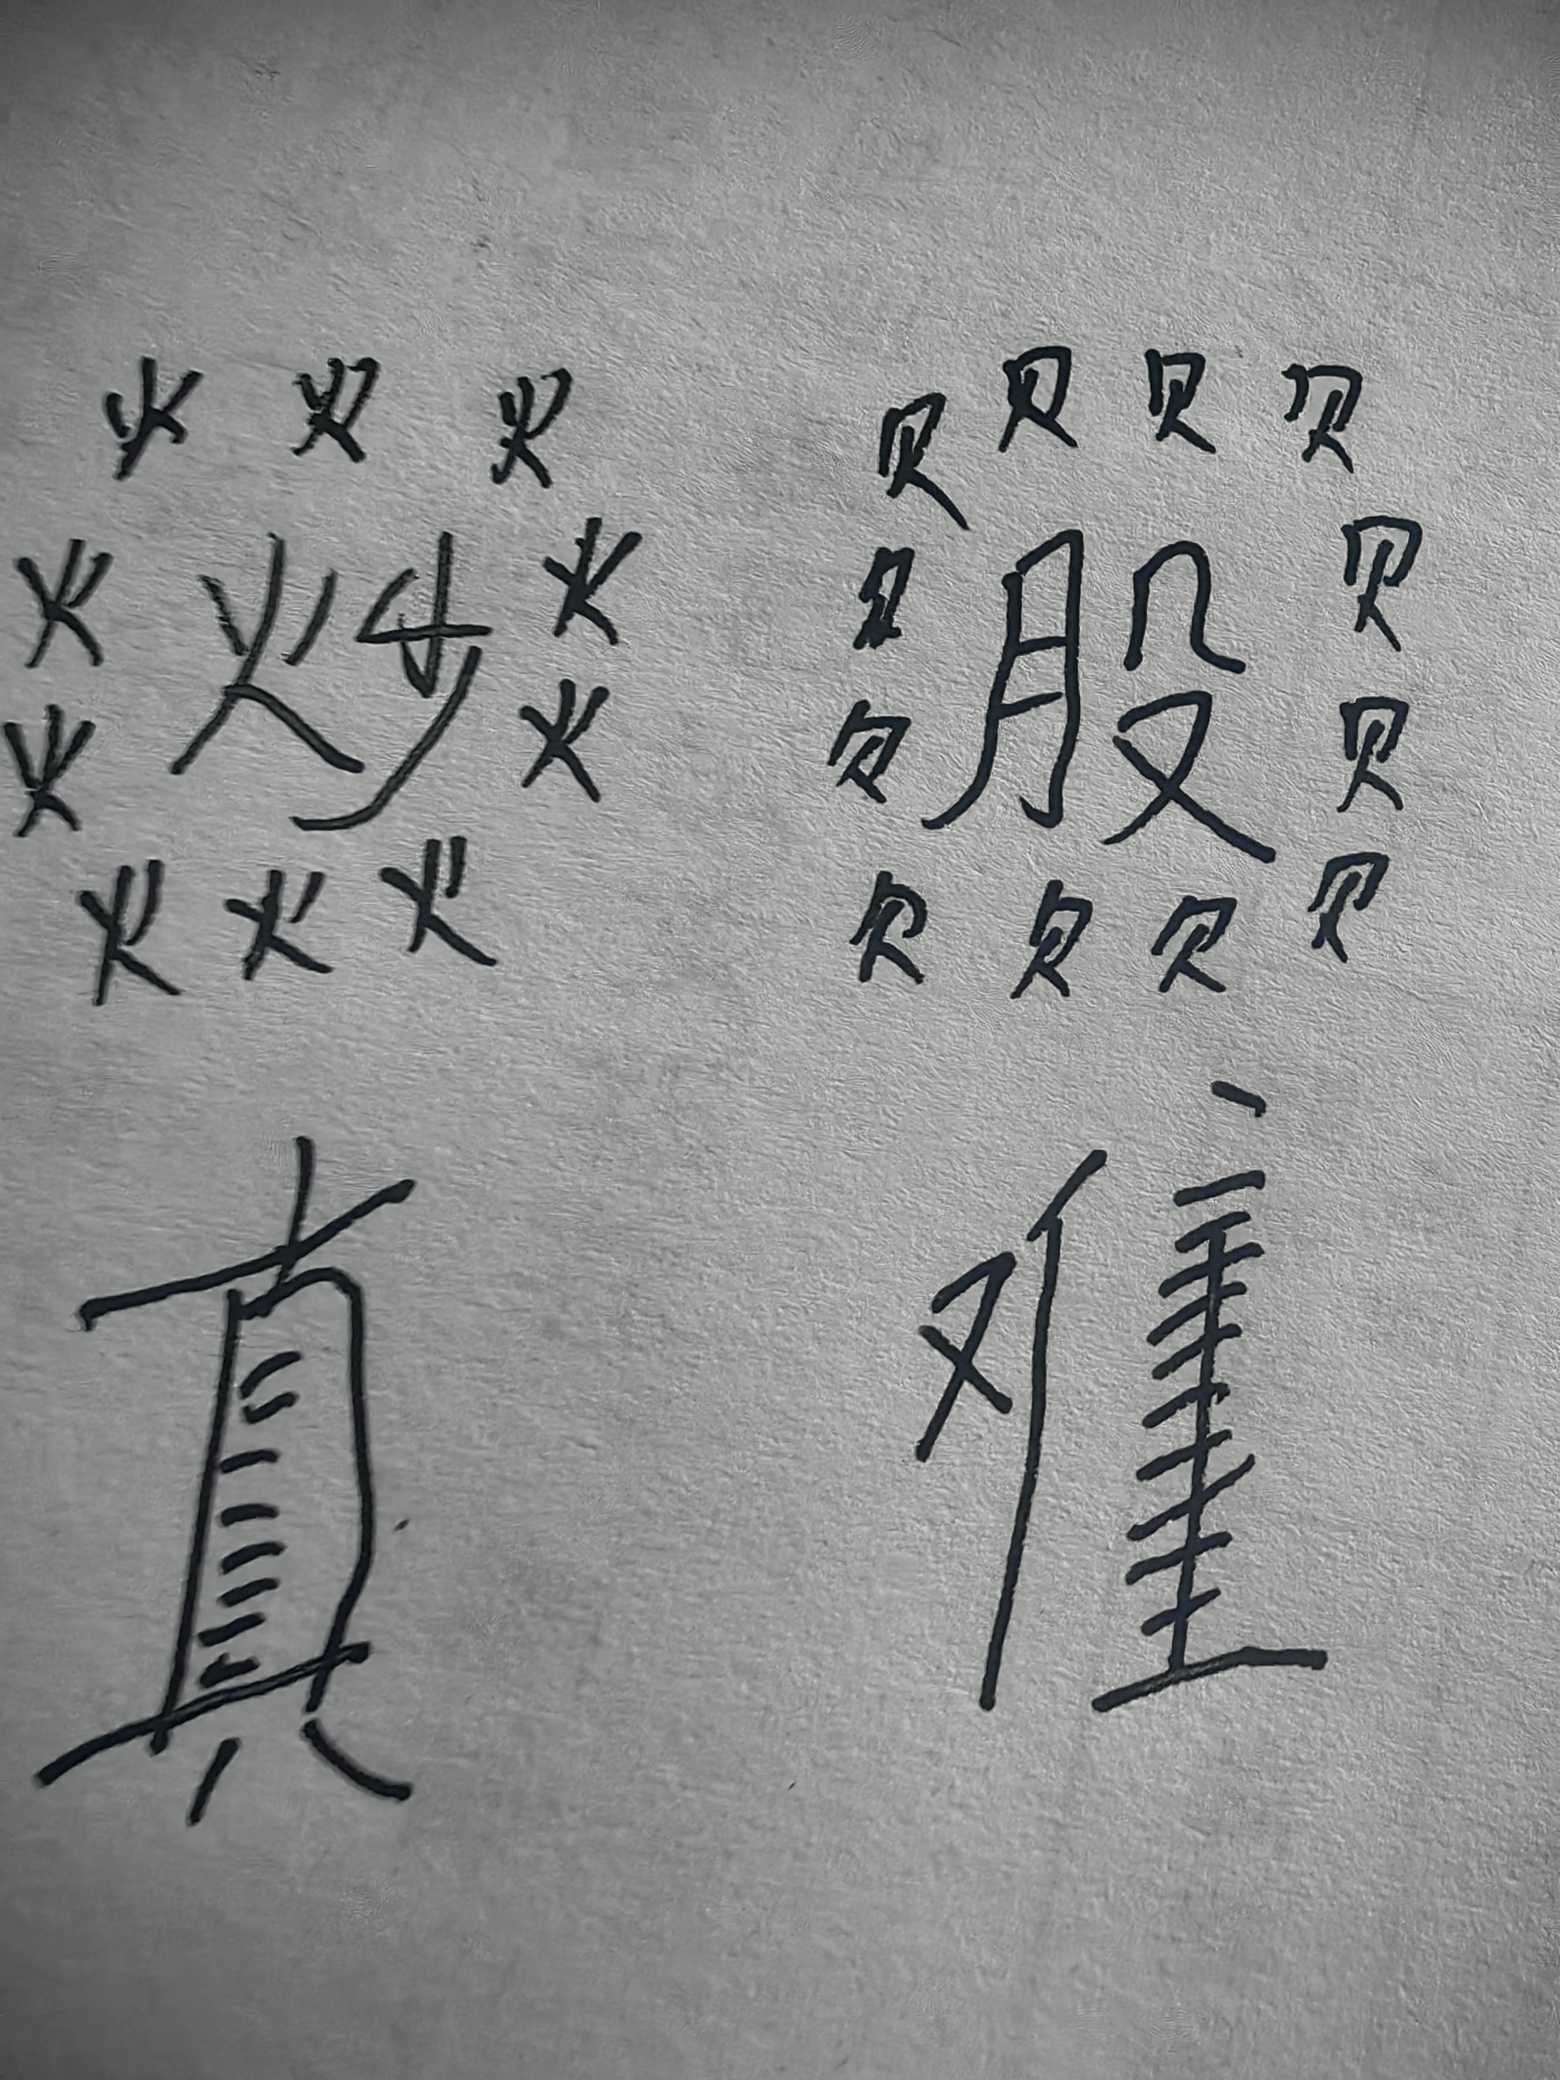 火 火 火 贝 贝 贝 贝
火 炒 火 贝 股 贝
火 火 贝 贝
火 火 火 贝 贝 贝 贝
真 难